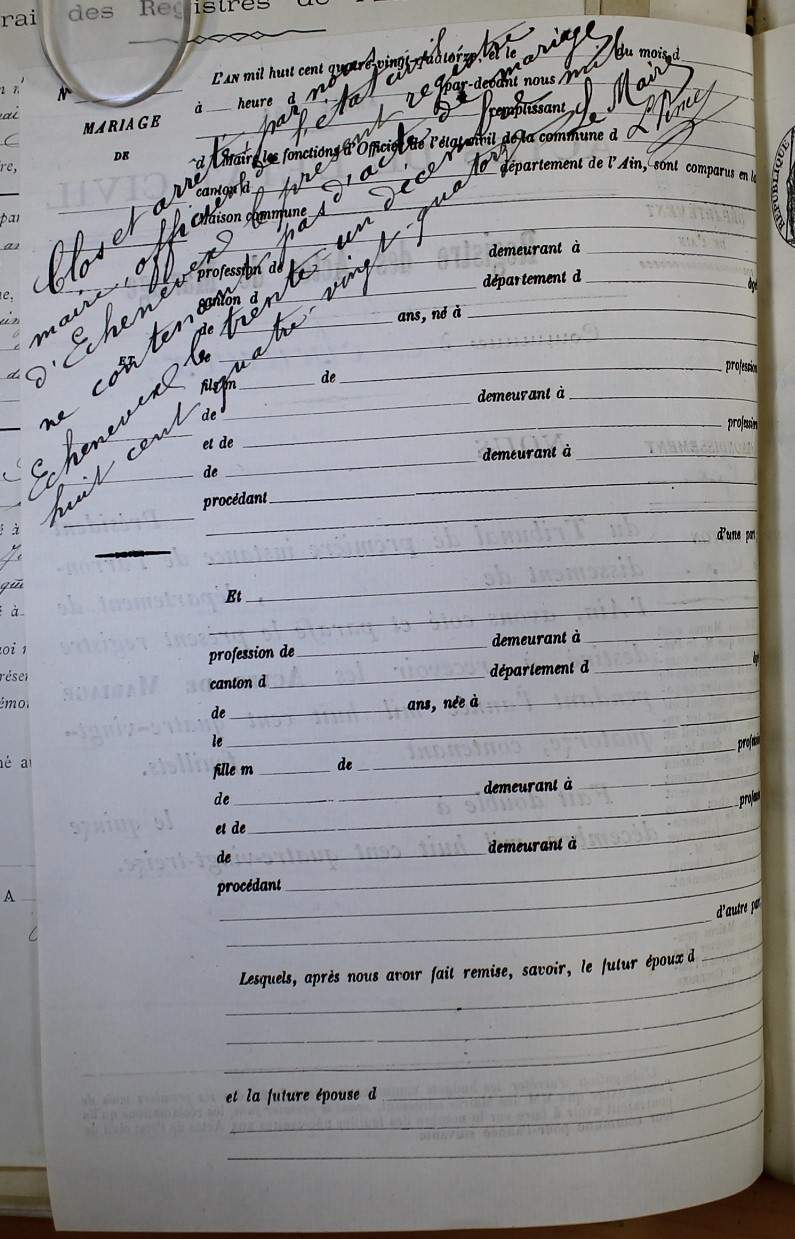 rai des Registres
N°
MARIAGE
DE
ET
L'AN mil huit cent quatre-vingt-quatorze, et le du mois d
à heure d par-devant nous
remplissant
d Maire les fonctions d'Officier de l'état civil de la commune d
canton d département de l'Ain, sont comparus en la
Maison commune
demeurant à
profession de
canton d département d âgé
de ans, né à
le
fils m de profession
de demeurant à
et de profession
de demeurant à
procédant
d'une part
Et
profession de demeurant à
canton d département d
de ans, née à
le
fille m de
de demeurant à
et de
de demeurant à
procédant
d'autre par
Lesquels, après nous avoir fait remise, savoir, le futur époux d
et la future épouse d
Clos et arrêté par nous
maire, officier de l'état civil
d'Echenevex le présent registre
ne contenant pas d'acte de mariage
Echenevex le trente un décembre mil
huit cent quatre-vingt-quatorze
Le Maire